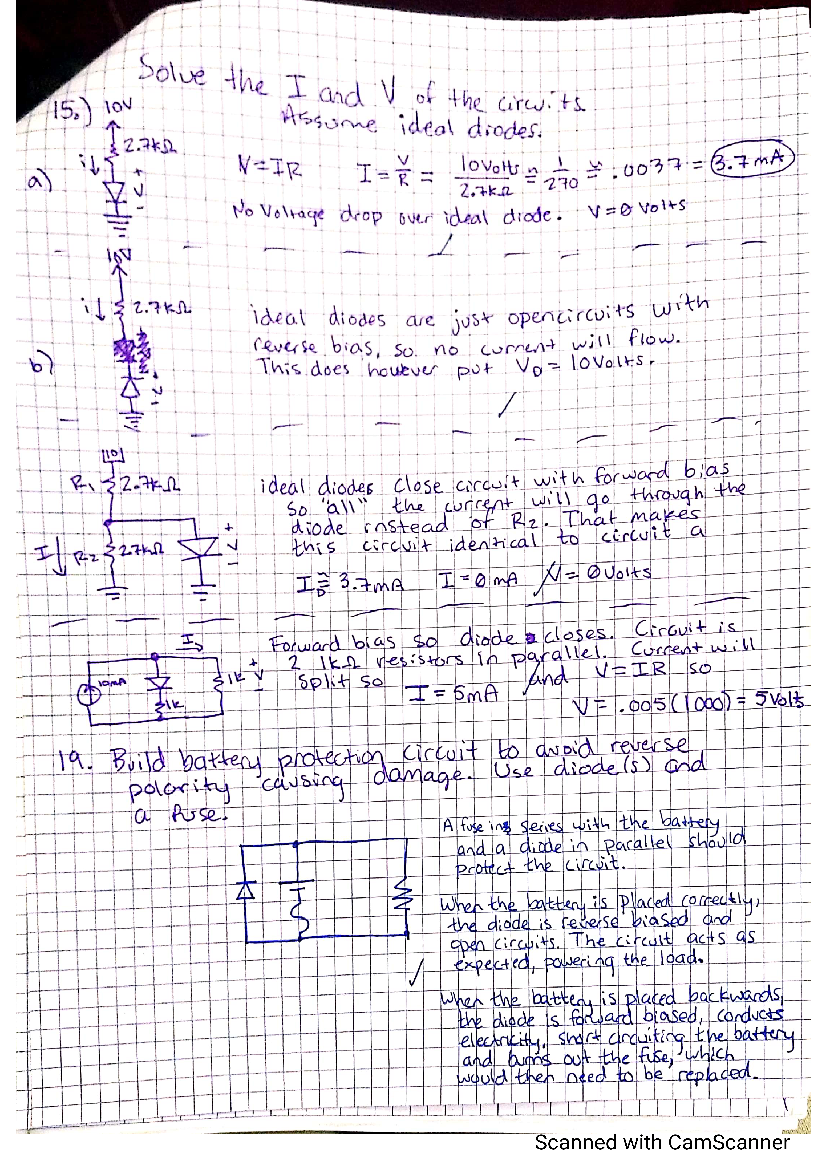 Solve the I and V of the circuits.
Assume ideal diodes.
15.) 10V
2.7kΩ
i↓
+
V
-
a)
V=IR I = V/R = 10Volts/2.7kΩ ≈ 1/270 ≈ .0037 = 3.7mA
No Voltage drop over ideal diode. V=0 Volts
10V
i↓ 2.7kΩ
b)
ideal diodes are just opencircuits with
reverse bias, so no current will flow.
This does however put V_D = 10Volts.
10
R₁ 2.7kΩ
I↓ R₂ 2.7kΩ
+
V
-
ideal diodes close circuit with forward bias
so "all" the current will go through the
diode instead of R₂. That makes
this circuit identical to circuit a
I_D ≈ 3.7mA I=0mA V=0Volts
I
10mA
1k
1k
+
V
-
Forward bias so diode closes. Circuit is
2 1kΩ resistors in parallel. Current will
split so I=5mA and V=IR so
V=.005(1000)=5Volts
19. Build battery protection circuit to avoid reverse
polarity causing damage. Use diode(s) and
a fuse.
A fuse in series with the battery
and a diode in parallel should
protect the circuit.
When the battery is placed correctly,
the diode is reverse biased and
open circuits. The circuit acts as
expected, powering the load.
When the battery is placed backwards,
the diode is forward biased, conducts
electricity, short circuiting the battery
and burns out the fuse, which
would then need to be replaced.
1
Scanned with CamScanner